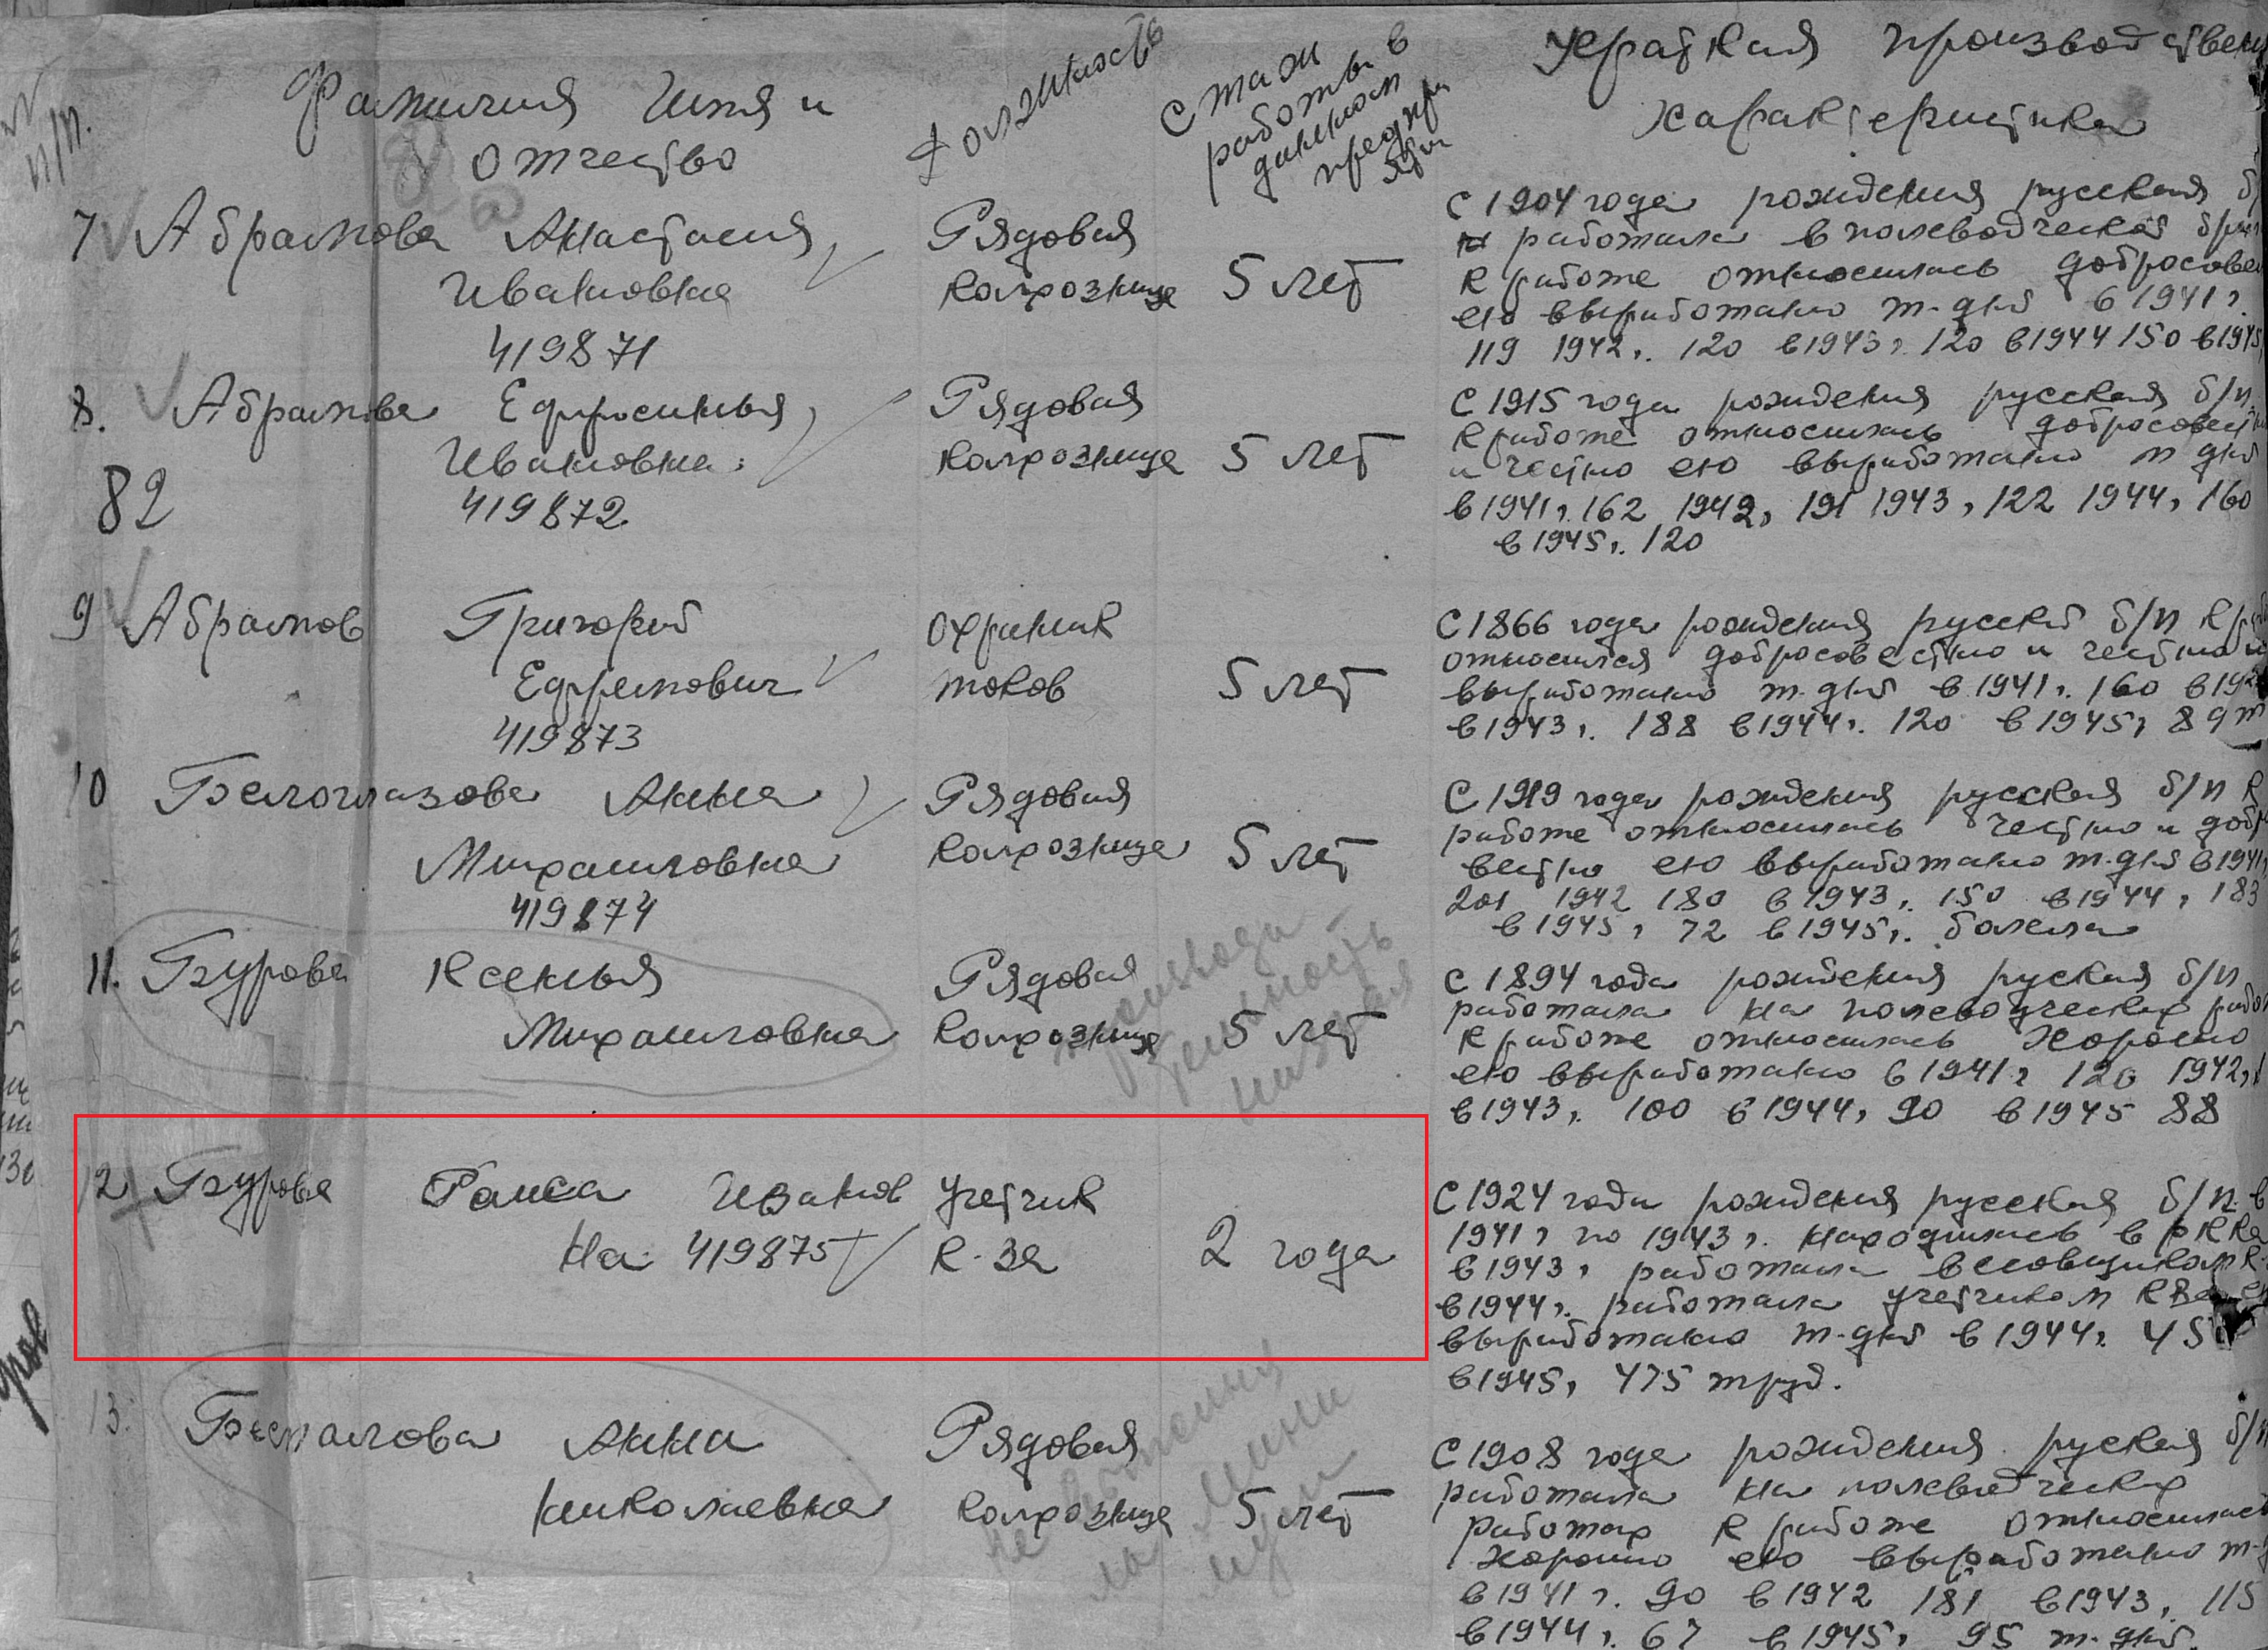 № п/п.
Фамилия Имя и
отчество
Должность
Стаж
работы в
данном
предпри
ятии
Краткая производствен
характеристика
7 Абрамова Анастасия
Ивановна
419871
Рядовая
колхозница
5 лет
С 1904 года рождения русская б/
работала в полеводческой бри
к работе относилась добросове
ею выработано т-дней в 1941 г.
119 1942 г. 120 в 1943 г. 120 в 1944 150 в 1945
8. Абрамова Ефросинья
Ивановна
419872
82
Рядовая
колхозница
5 лет
С 1915 года рождения русская б/п.
к работе относилась добросовест
и честно ею выработано т дней
в 1941 г. 162 1942 г. 191 1943 г. 122 1944 г. 160
в 1945 г. 120
9 Абрамов Григорий
Ефремович
419873
охранник
токов
5 лет
С 1866 года рождения русский б/п к р
относился добросовестно и честно
выработано т-дней в 1941 г. 160 в 1942
в 1943 г. 188 в 1944 г. 120 в 1945 г. 89 т
10 Белоглазова Анна
Михаиловна
419874
Рядовая
колхозница
5 лет
С 1919 года рождения русская б/п к
работе относилась честно и добр
вестно ею выработано т-дней в 1941 г.
201 1942 180 в 1943 г. 150 в 1944 г. 183
в 1945 г. 72 в 1945 г. болела
11. Бурова Ксенья
Михаиловна
Рядовая
колхозница
5 лет
производи
тельность
низкая
С 1894 года рождения руская б/п
работала на полеводческих рабо
к работе относилась хорошо
ею выработано в 1941 г. 120 1942 г.
в 1943 г. 100 в 1944 г. 90 в 1945 88
12 Бурова Раиса Иванов
на 419875
Учетчик
к-за
2 года
С 1924 года рождения русская б/п. в
1941 г по 1943 г. находилась в РККА
в 1943 г работала весовщиком к-
в 1944 г. работала учетчиком
выработано т-дней в 1944 г. 45
в 1945 г 475 труд.
13. Беспалова Анна
Николаевна
Рядовая
колхозница
5 лет
С 1908 года рождения руская б/п
работала на полеводческих
работах к работе относилась
хорошо ею выработано т-
в 1941 г. 90 в 1942 181 в 1943 г. 115
в 1944 г. 67 в 1945 г 95 т-дней